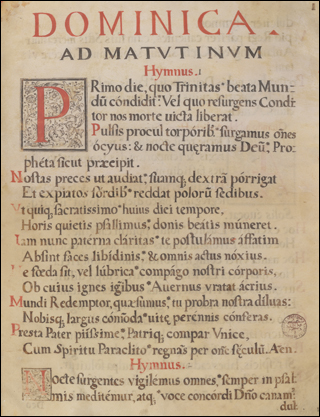 DOMINICA.
AD MATVTINVM
Hymnus.
PRimo die, quo Trinitas beata Mun-
dū cōndidit: Vel quo resurgens Condi-
tor nos morte victa liberat.
Pulsis procul torpōrib9 surgamus oēs
ōcyus: & nocte quęramus Deū, Pro-
phéta sicut pręcipit.
Nostas preces ut audiat, suamq; dextrā pórrigat
Et expiatos sordib9 reddat polorū sedibus.
Vt quiq; sacratissimo huius diei tempore,
Horis quietis psallimus, donis beatis múneret.
Iam nunc paterna cláritas te postulamus affatim
Absint faces libídinis, & omnis actus nóxius.
Ne fœda sit, vel lúbrica compágo nostri córporis,
Ob cuius ignes ignibus Avernus vratat ácrius.
Mundi Redemptor, quæsumus, tu probra nostra díluas:
Nobisq; largus cómoda vitę perénnis cónferas.
Presta Pater piíssime, Patriq; compar Vnice,
Cum Spiritu Paraclito regnās per omē sęculū. Aēn.
Hymnus.
Nocte surgentes vigilémus omnes, semper in psal-
mis meditémur, atq; voce concórdi Dnō canam9
dul